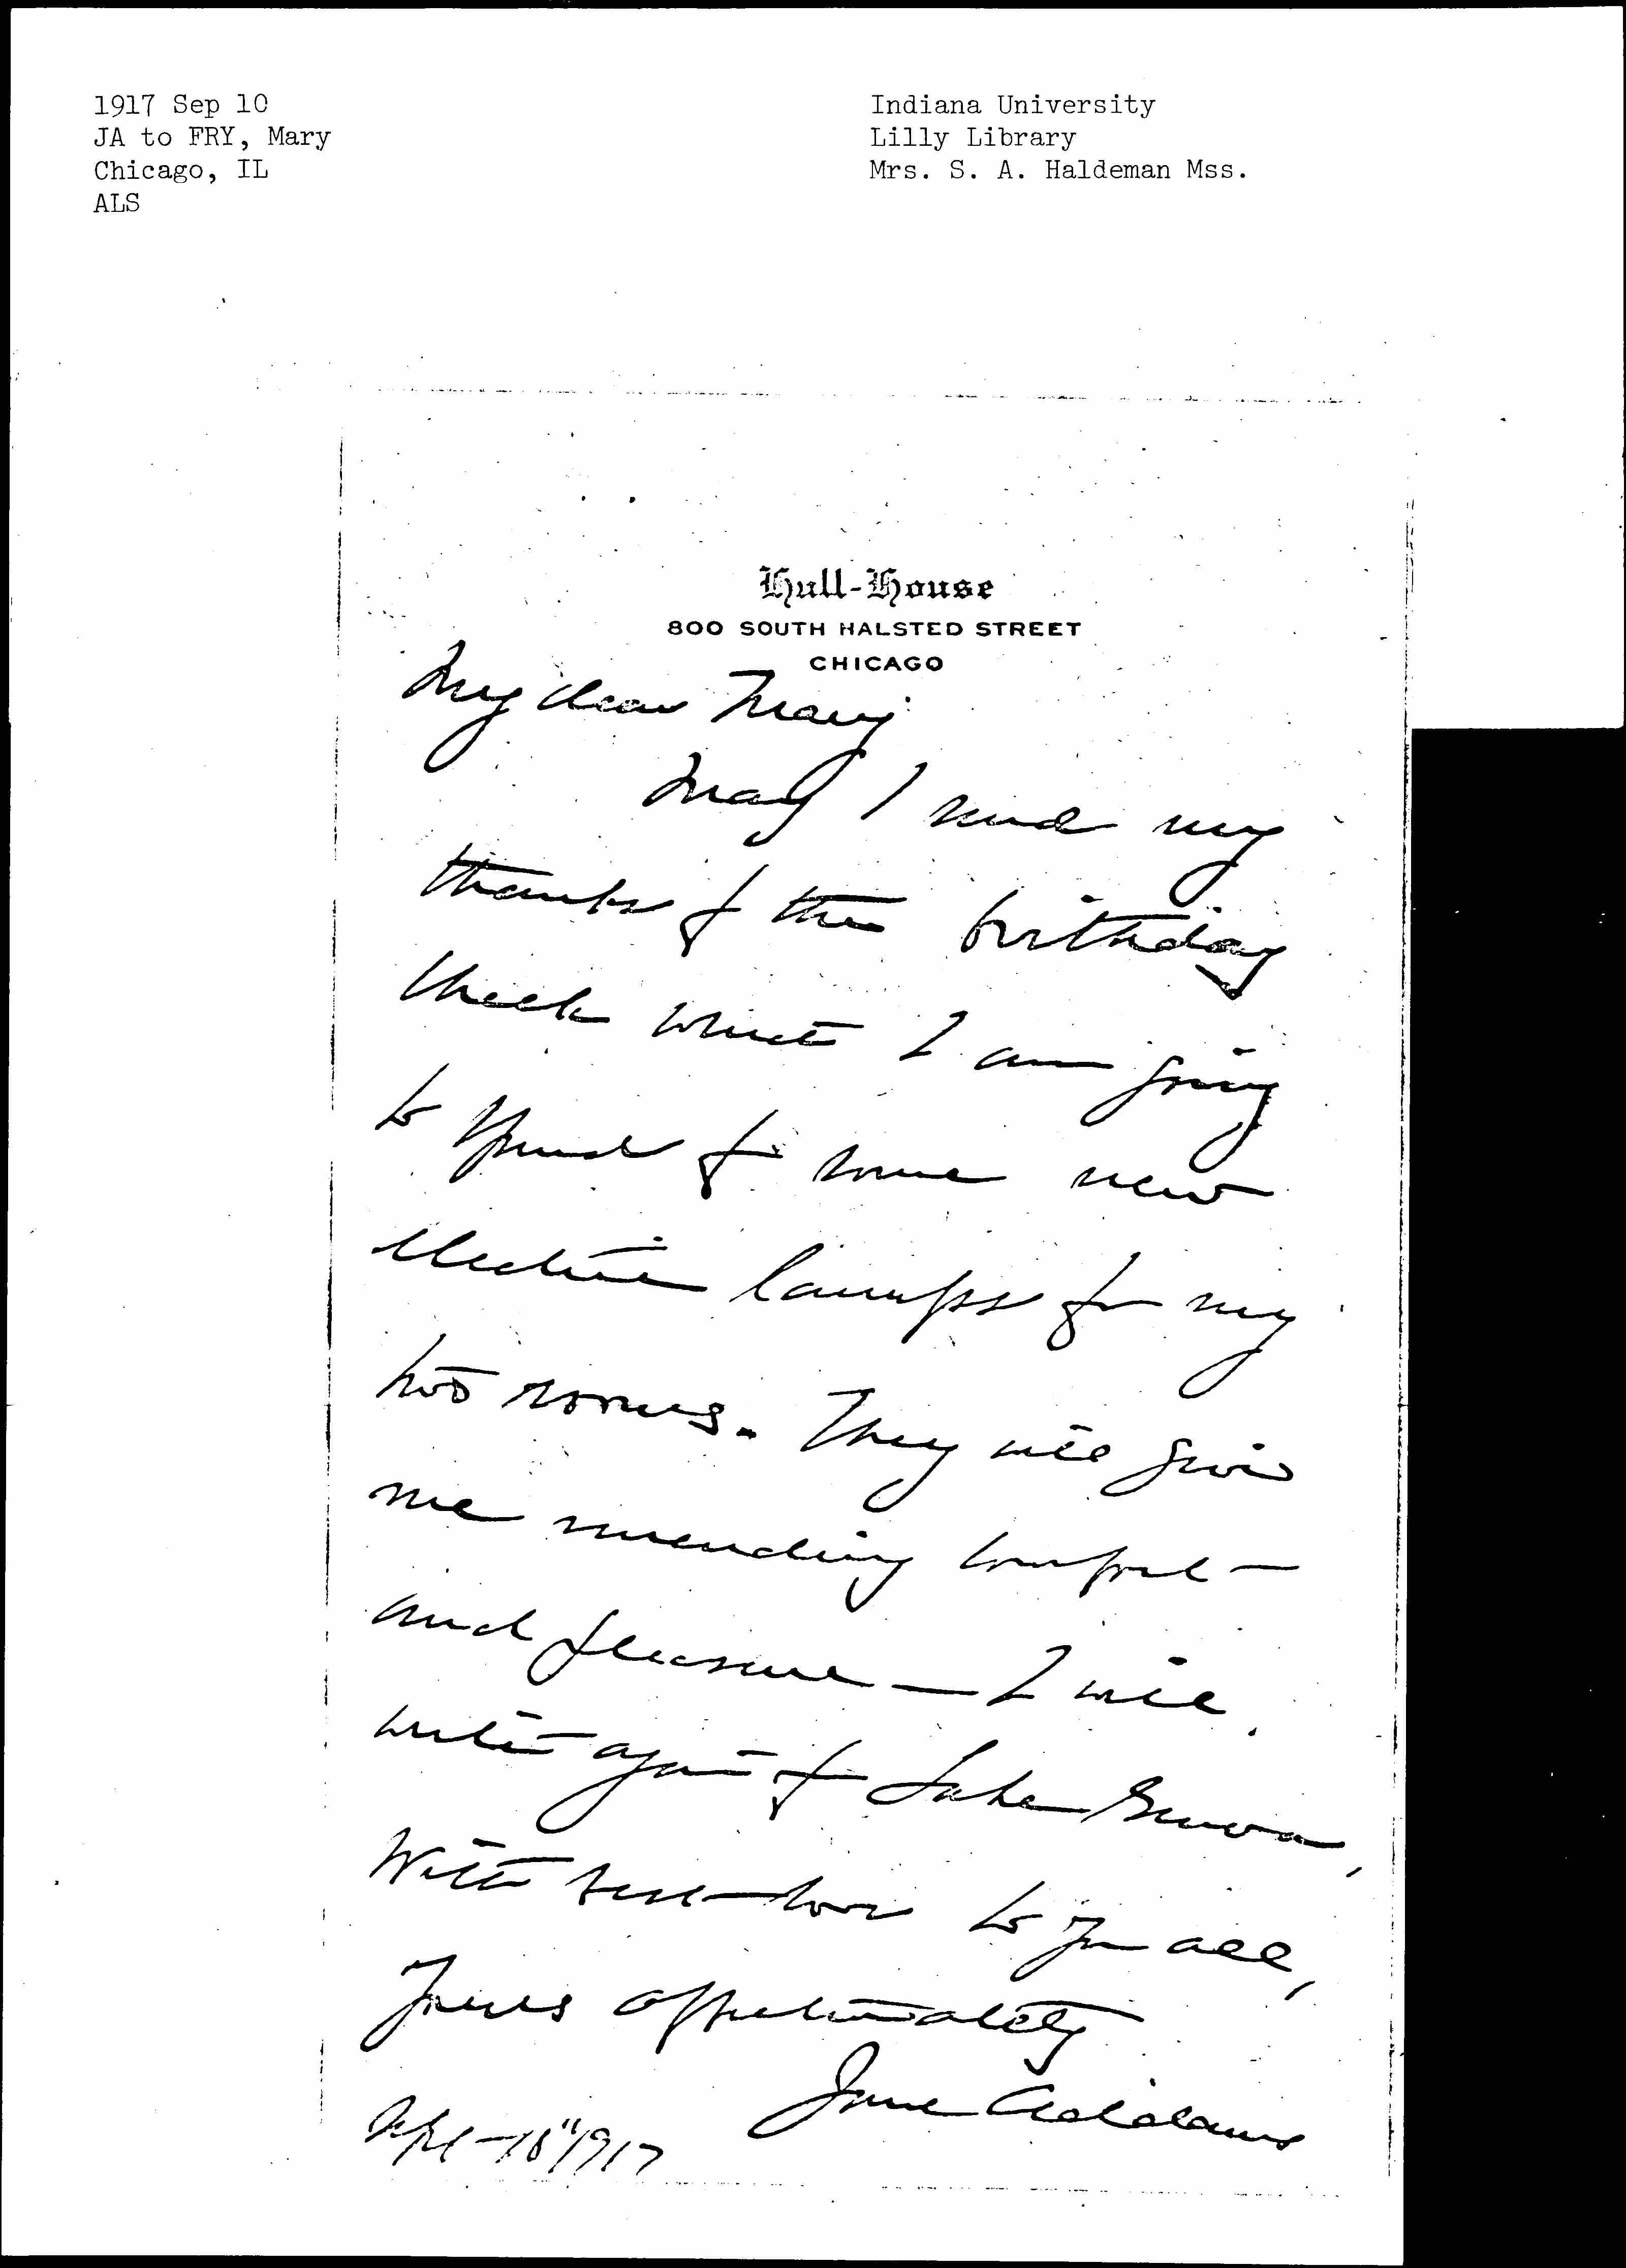 1917 Sep 10
JA to FRY, Mary
Chicago, IL
ALS
Indiana University
Lilly Library
Mrs. S. A. Haldeman Mss.
Hull-House
800 SOUTH HALSTED STREET
CHICAGO
My dear Mary
May I send my
thanks for the birthday
check which I am going
to spend for some new
electric lamps for my
two rooms. They will give
me unending comfort
and pleasure — I will
write again from Lake Geneva,
With best love to you all,
Yours affectionately
Jane Addams
Sept 10" 1917